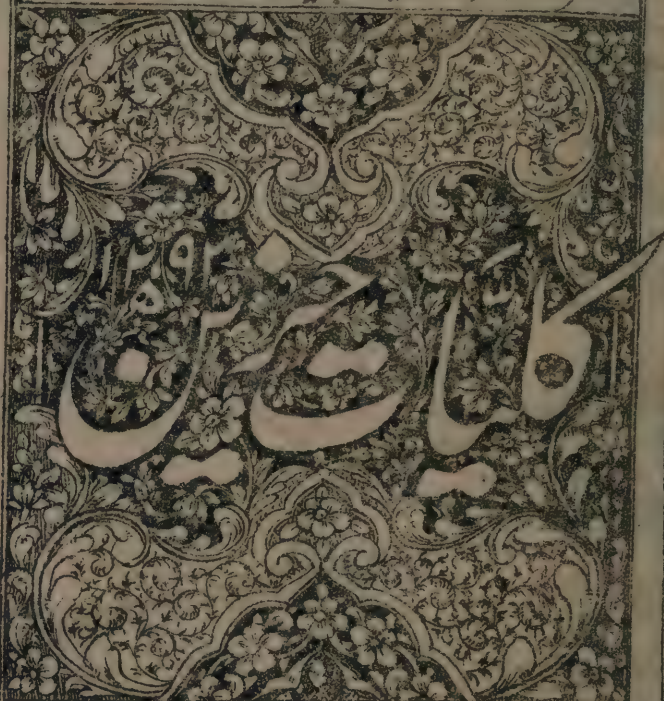 کلیات حزین
۱۲۹۳ ه